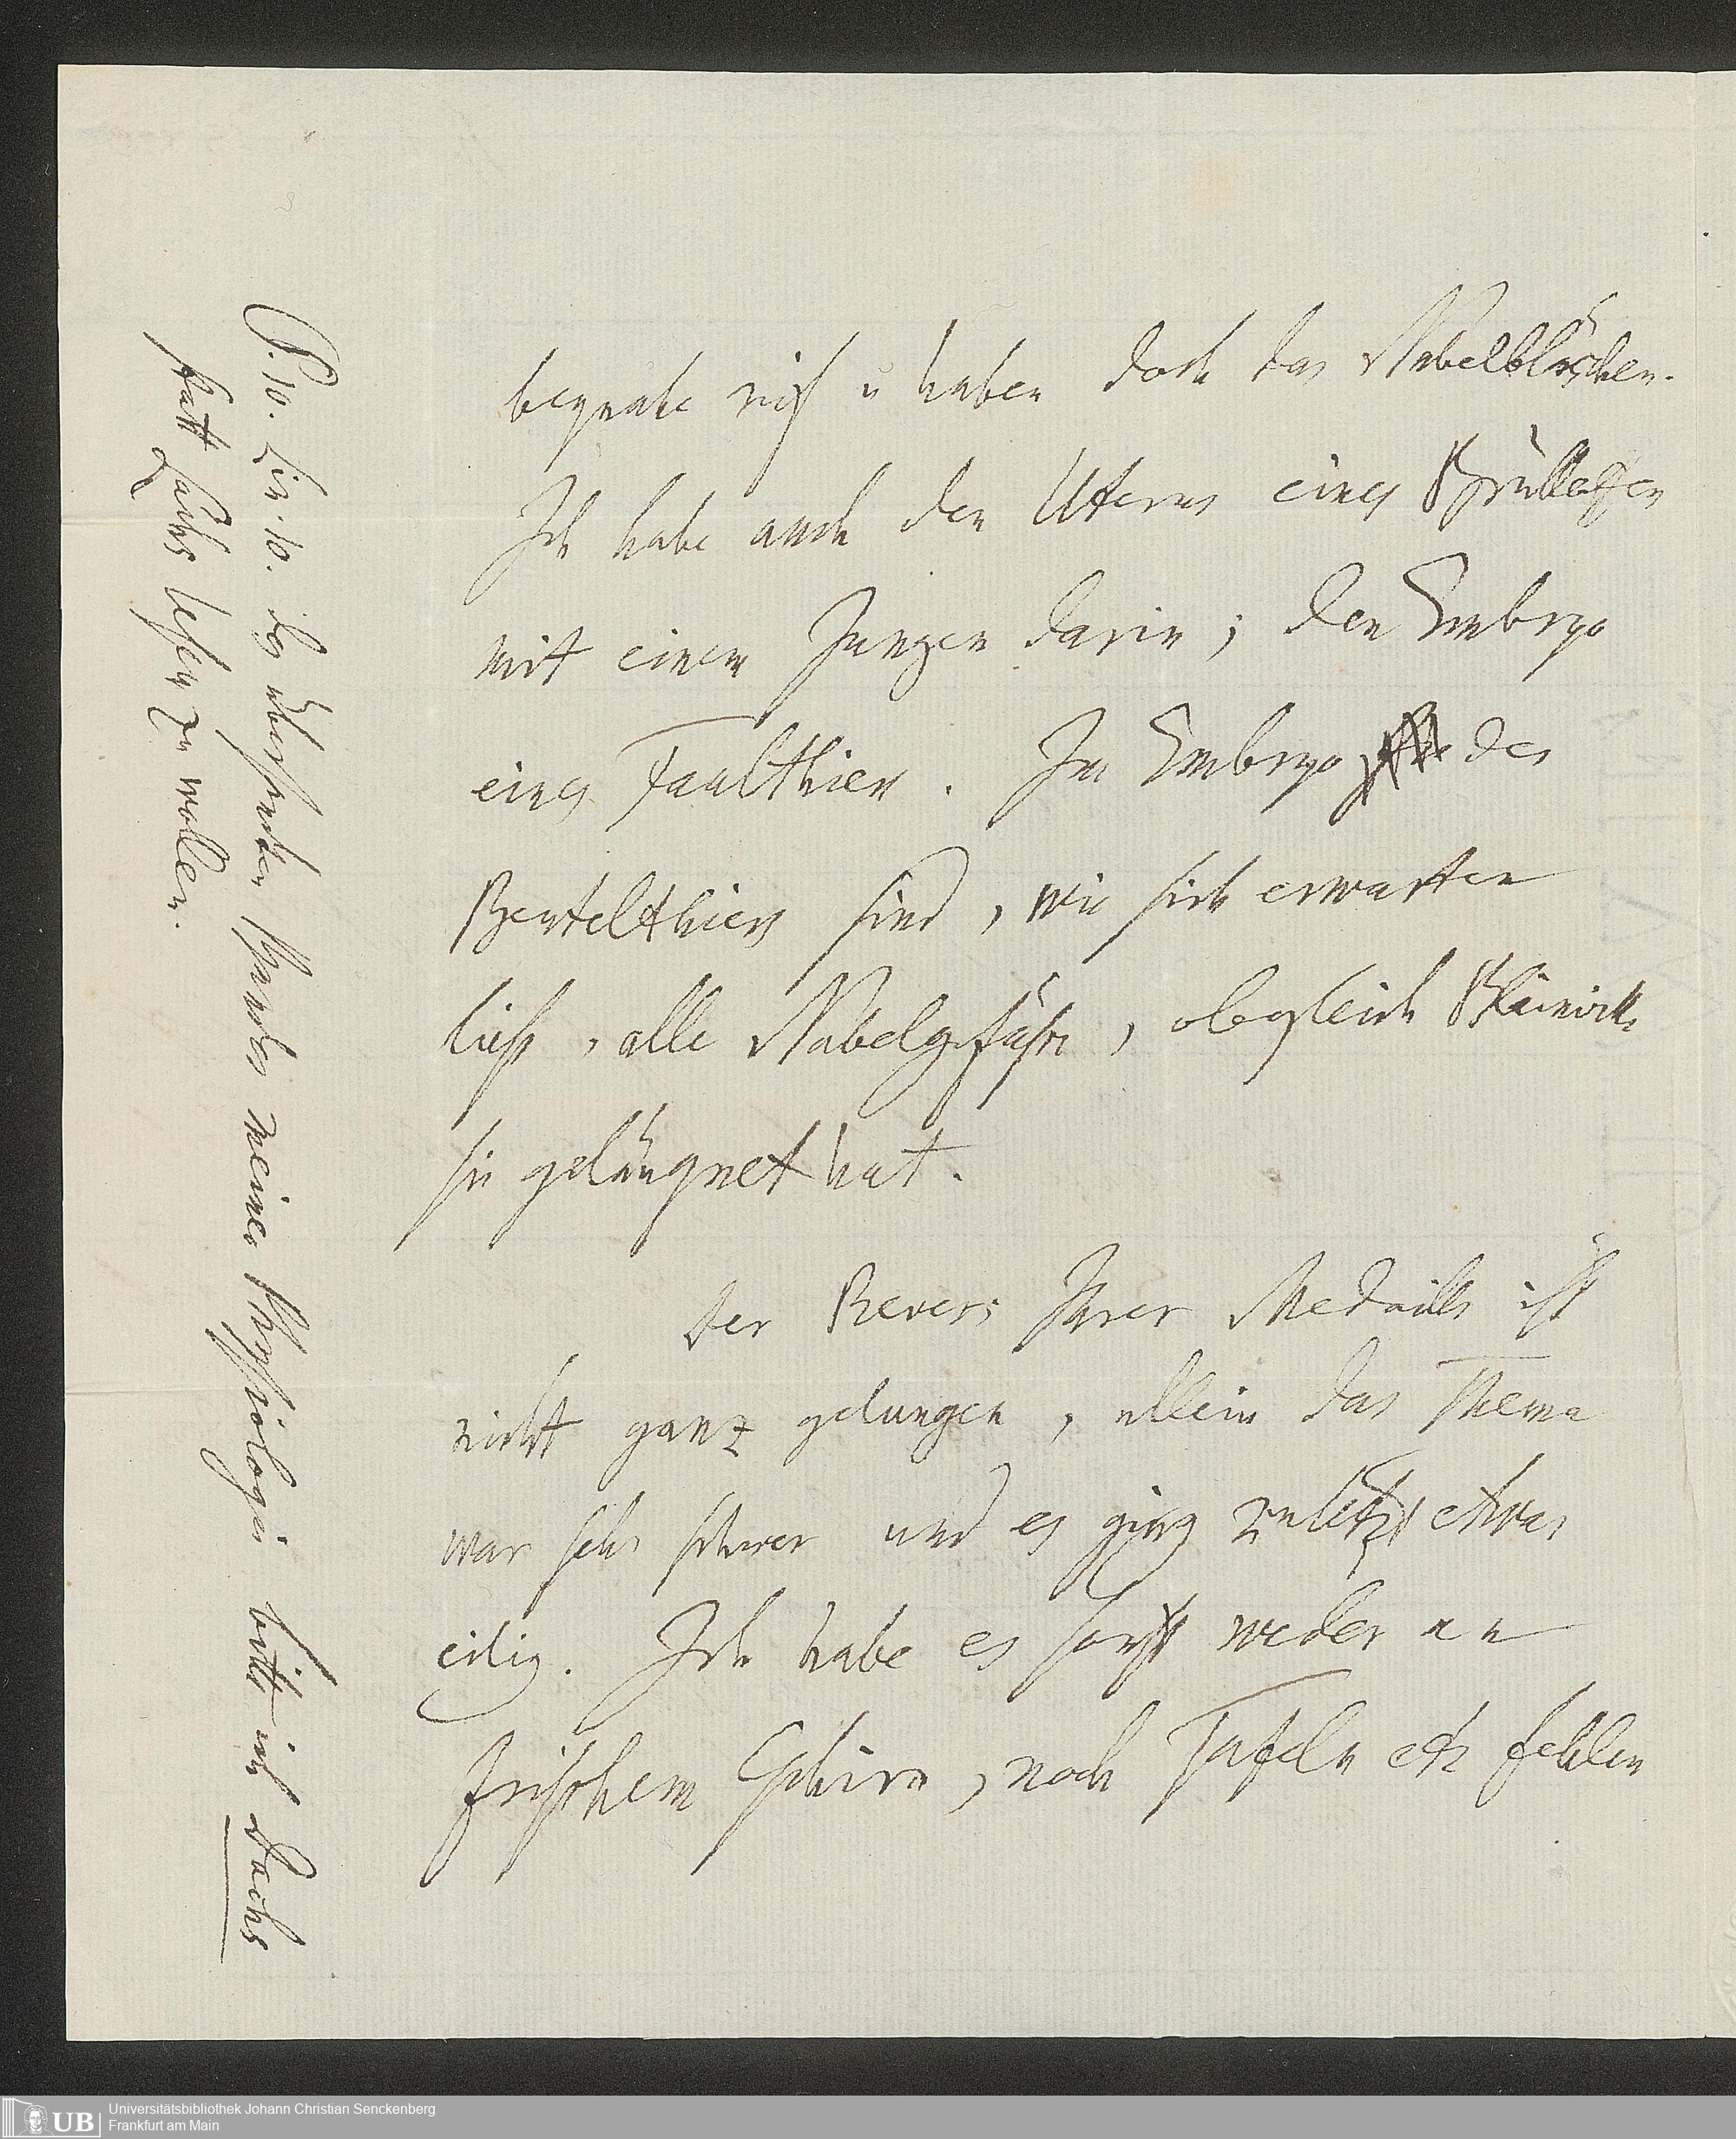 beynahe reif u haben doch das Nabelbläschen.
Ich habe auch den Uterus eines Brüllaffen
mit einem Jungen darin; den Embryo
eines Faulthiers. Im Embryo des
Beutelthiers sind, wie sich erwarten
ließ, alle Nabelgefäße, obgleich Blainville
sie geläugnet hat.
Der Revers Ihrer Medaille ist
nicht ganz gelungen, allein das Thema
war sehr schwer und es ging zuletzt etwas
eilig. Ich habe es sonst weder an
frischem Gehirn, noch Tafeln etc fehlen
P. 10. Lin. 10. des übersandten Bandes meiner Physiologie bitte ich Dachs
statt Lachs lesen zu wollen.
UB
Universitätsbibliothek Johann Christian Senckenberg
Frankfurt am Main